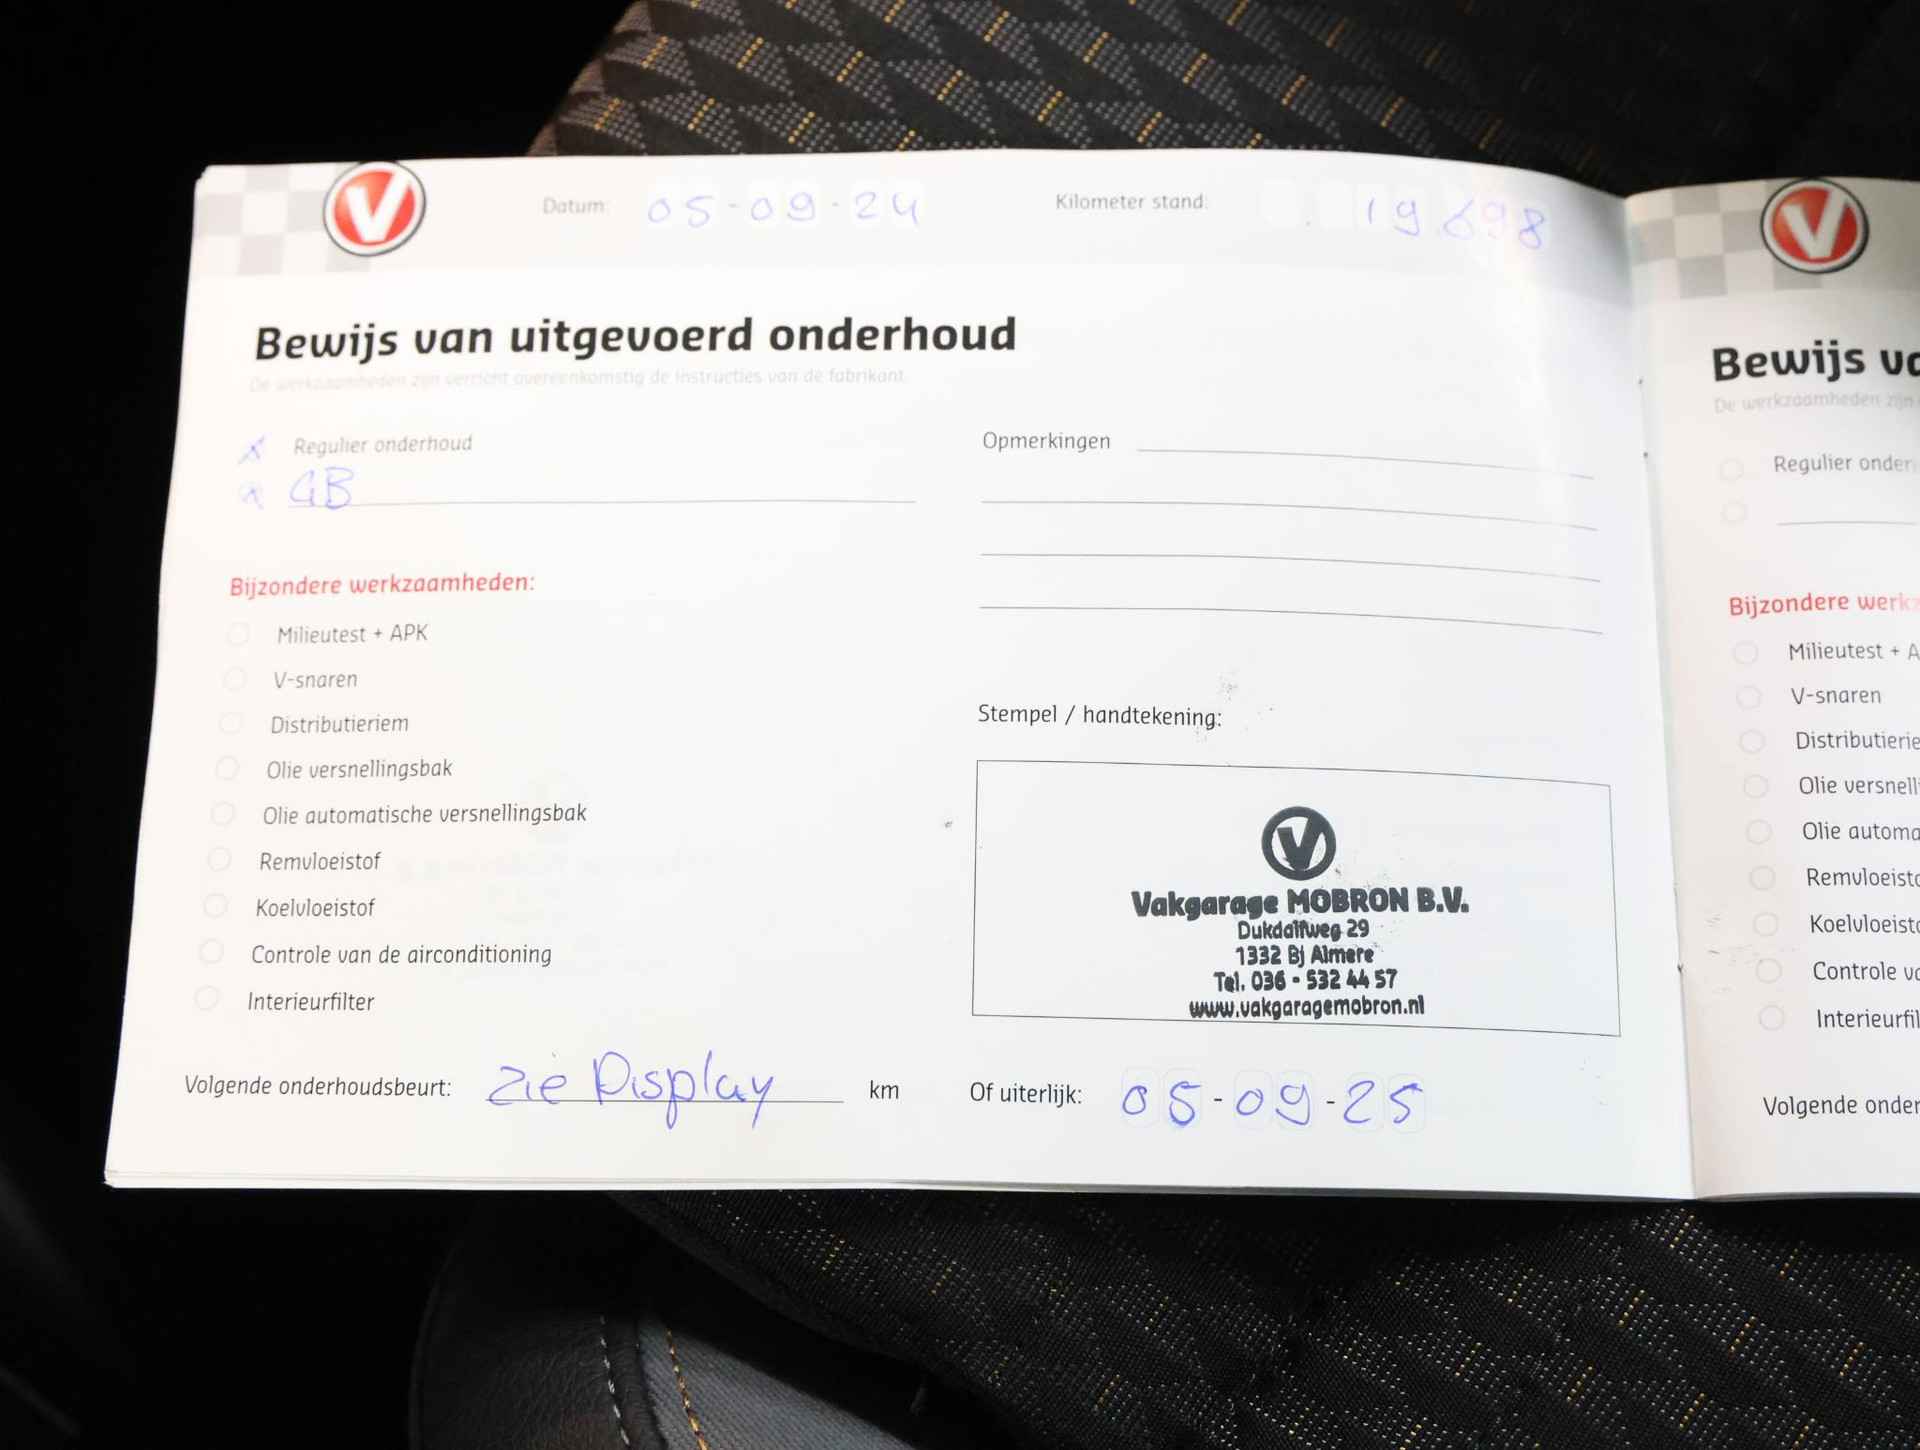 Datum: 05-09-24 Kilometer stand: 19.698
Bewijs van uitgevoerd onderhoud
De werkzaamheden zijn verricht overeenkomstig de instructies van de fabrikant.
x Regulier onderhoud
x GB
Opmerkingen
Bijzondere werkzaamheden:
Milieutest + APK
V-snaren
Distributieriem
Olie versnellingsbak
Olie automatische versnellingsbak
Remvloeistof
Koelvloeistof
Controle van de airconditioning
Interieurfilter
Stempel / handtekening:
V
Vakgarage MOBRON B.V.
Dukdalfweg 29
1332 Bj Almere
Tel. 036 - 532 44 57
www.vakgaragemobron.nl
Volgende onderhoudsbeurt: zie Display km Of uiterlijk: 05-09-25
V
Bewijs va
De werkzaamheden zijn
Regulier onder
Bijzondere werkz
Milieutest + A
V-snaren
Distributierie
Olie versnelli
Olie automa
Remvloeisto
Koelvloeisto
Controle va
Interieurfil
Volgende onder